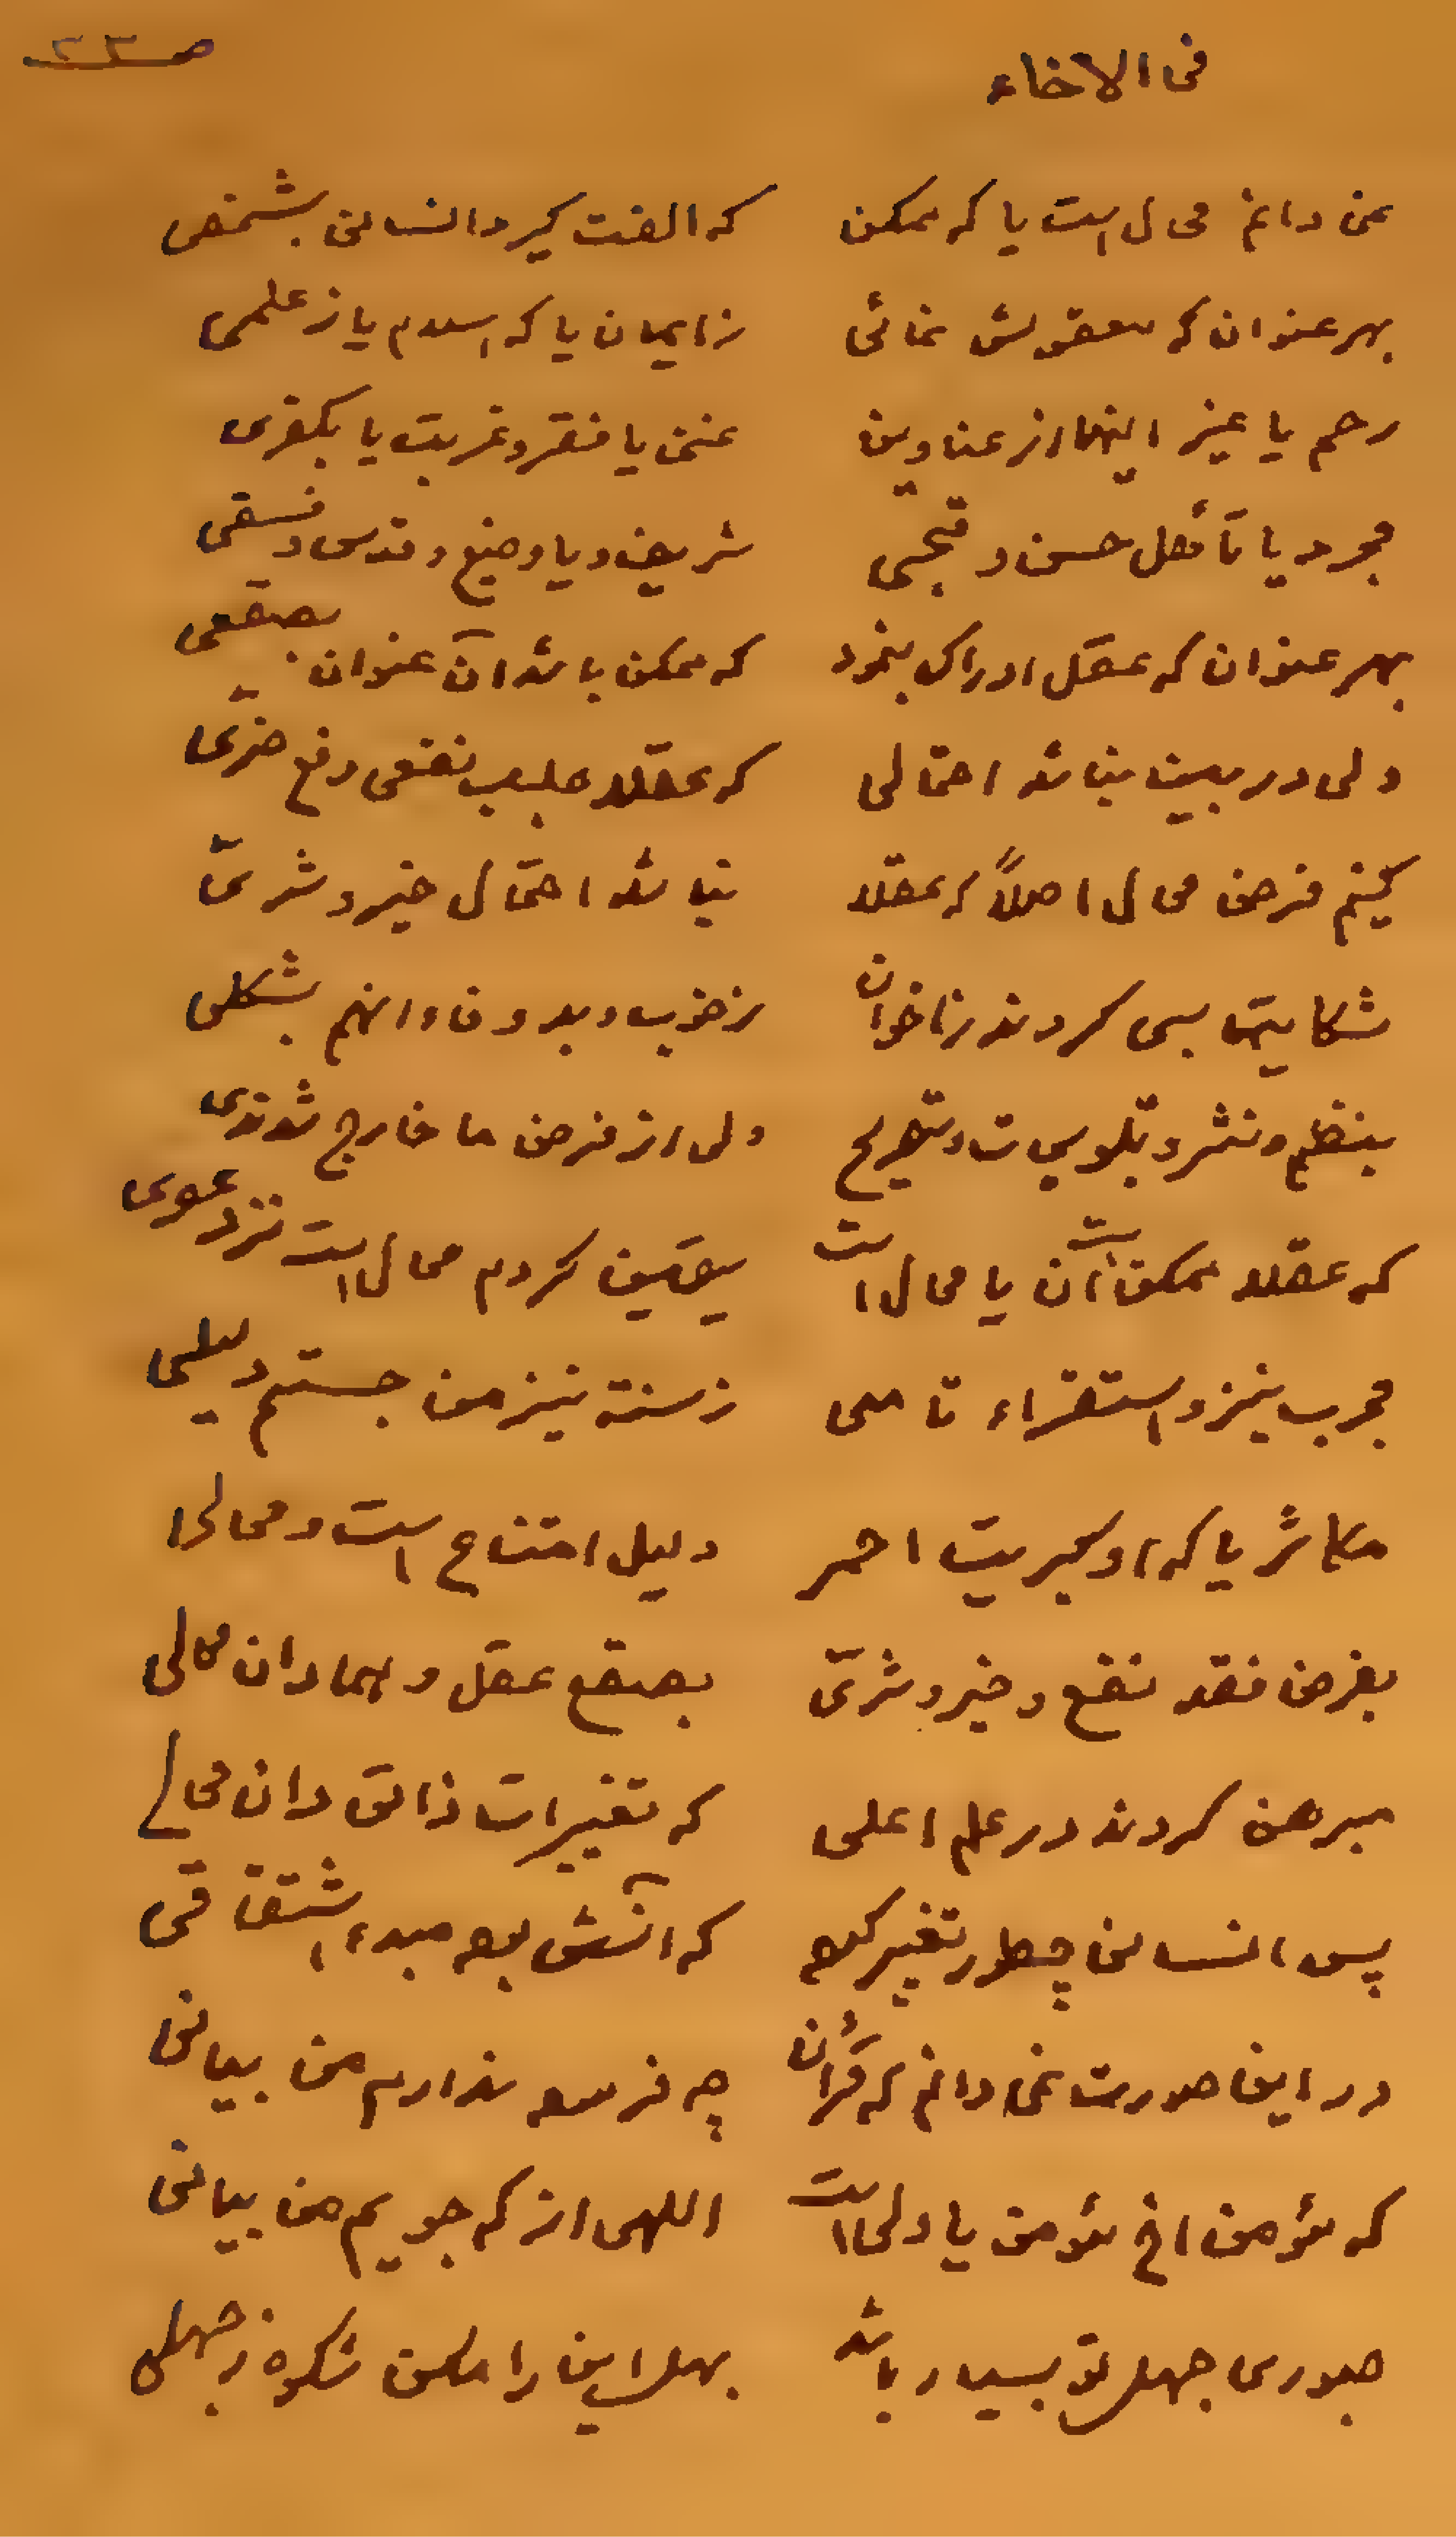 فی الاخاء ص۲۳
نمی دانم محال است یا که ممکن که الفت گیرد انسانی بشخصی
بهر عنوان که معقولش نمائی ز ایمان یا که اسلام یا ز علمی
رحم یا غیر اینها از عناوین غنی یا فقر و غربت یا بکفری
مجرد یا تأهل حسن و قبحی شریف و یا وضیع و قدس و فسقی
بهر عنوان که عقل ادراک بنمود که ممکن باشد آن عنوان بصقعی
ولی در بین نباشد احتمالی که عقلا جلب نفعی دفع ضرّی
کنیم فرض محال اصلاً که عقلا نباشد احتمال خیر و شرّی
شکایت بسی کردند ز اخوان ز خوب و بد وفاء انهم بشکلی
بنظم و نثر و تلویحات و تصریح ولی از فرض ما خارج شدندی
که عقلا ممکن است آن یا محال است یقین کردم محال است نزد عوی
مجرب نیز و استقراء تامی ز سنة نیز من جستم دلیلی
مکاشر یا که او کبریت احمر دلیل امتناع است و محالی
بفرض فقد نفع و خیر و شرّی بصقع عقل و اما دان محالی
مبرهن کردند در علم اعلی که تغییرات ذاتی دان محالی
پس انسانی چطور تغییر کرده که انسش بوده مبدء اشتقاقی
در این صورت نمی دانم که قرآن چه فرموده ندارم من بیانی
که مؤمن اخ مؤمن یا ولی است اللهی از که جویم من بیانی
صبوری جهل تو بسیار باشد بهل این را مکن شکوه ز جهلی